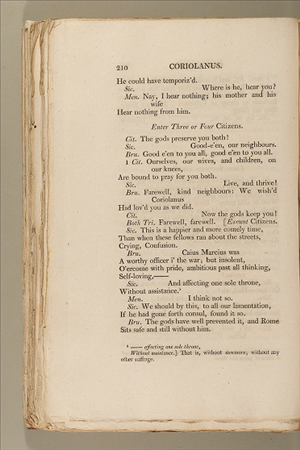 210 CORIOLANUS.
He could have temporiz'd.
Sic. Where is he, hear you?
Men. Nay, I hear nothing; his mother and his
wife
Hear nothing from him.
Enter Three or Four Citizens.
Cit. The gods preserve you both!
Sic. Good-e'en, our neighbours.
Bru. Good e'en to you all, good e'en to you all.
1 Cit. Ourselves, our wives, and children, on
our knees,
Are bound to pray for you both.
Sic. Live, and thrive!
Bru. Farewell, kind neighbours: We wish'd
Coriolanus
Had lov'd you as we did.
Cit. Now the gods keep you!
Both Tri. Farewell, farewell. [Exeunt Citizens.
Sic. This is a happier and more comely time,
Than when these fellows ran about the streets,
Crying, Confusion.
Bru. Caius Marcius was
A worthy officer i' the war; but insolent,
O'ercome with pride, ambitious past all thinking,
Self-loving,——
Sic. And affecting one sole throne,
Without assistance.⁵
Men. I think not so.
Sic. We should by this, to all our lamentation,
If he had gone forth consul, found it so.
Bru. The gods have well prevented it, and Rome
Sits safe and still without him.
—— affecting one sole throne,
Without assistance.] That is, without assessors; without any
other suffrage.